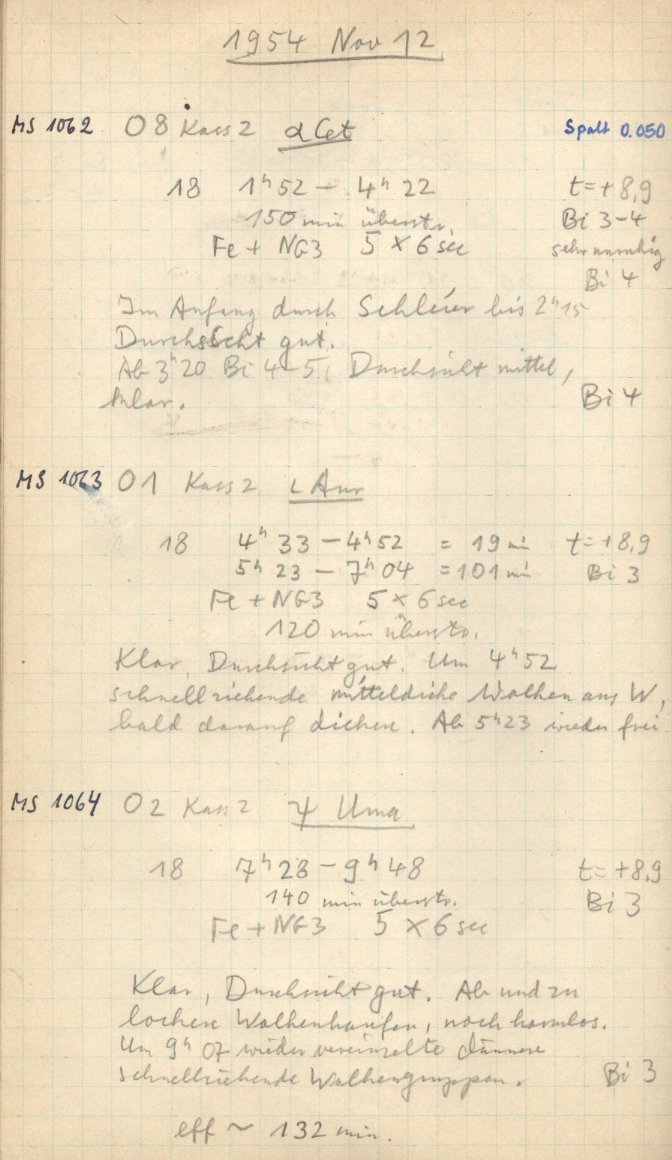 1954 Nov 12
MS 1062 O8 Kass 2 α Cet Spalt 0.050
18 1ʰ52 – 4ʰ22 t=+8,9
150 min überstr. Bi 3-4
Fe + NG3 5 × 6 sec sehr unruhig
Bi 4
Im Anfang durch Schleier bis 2ʰ15
Durchsicht gut.
Ab 3ʰ20 Bi 4-5, Durchsicht mittel,
klar. Bi 4
MS 1063 O1 Kass 2 ι Aur
18 4ʰ33 – 4ʰ52 = 19 min t=+8,9
5ʰ23 – 7ʰ04 = 101 min Bi 3
Fe + NG3 5 × 6 sec
120 min überstr.
Klar, Durchsicht gut. Um 4ʰ52
schnellziehende mitteldicke Wolken aus W,
bald darauf dichere. Ab 5ʰ23 wieder frei
MS 1064 O2 Kass 2 ψ Uma
18 7ʰ28 – 9ʰ48 t=+8,9
140 min überstr. Bi 3
Fe + NG3 5 × 6 sec
Klar, Durchsicht gut. Ab und zu
lockere Wolkenhaufen, noch harmlos.
Um 9ʰ07 wieder vereinzelte dünnere
schnellziehende Wolkengruppen. Bi 3
eff ~ 132 min.